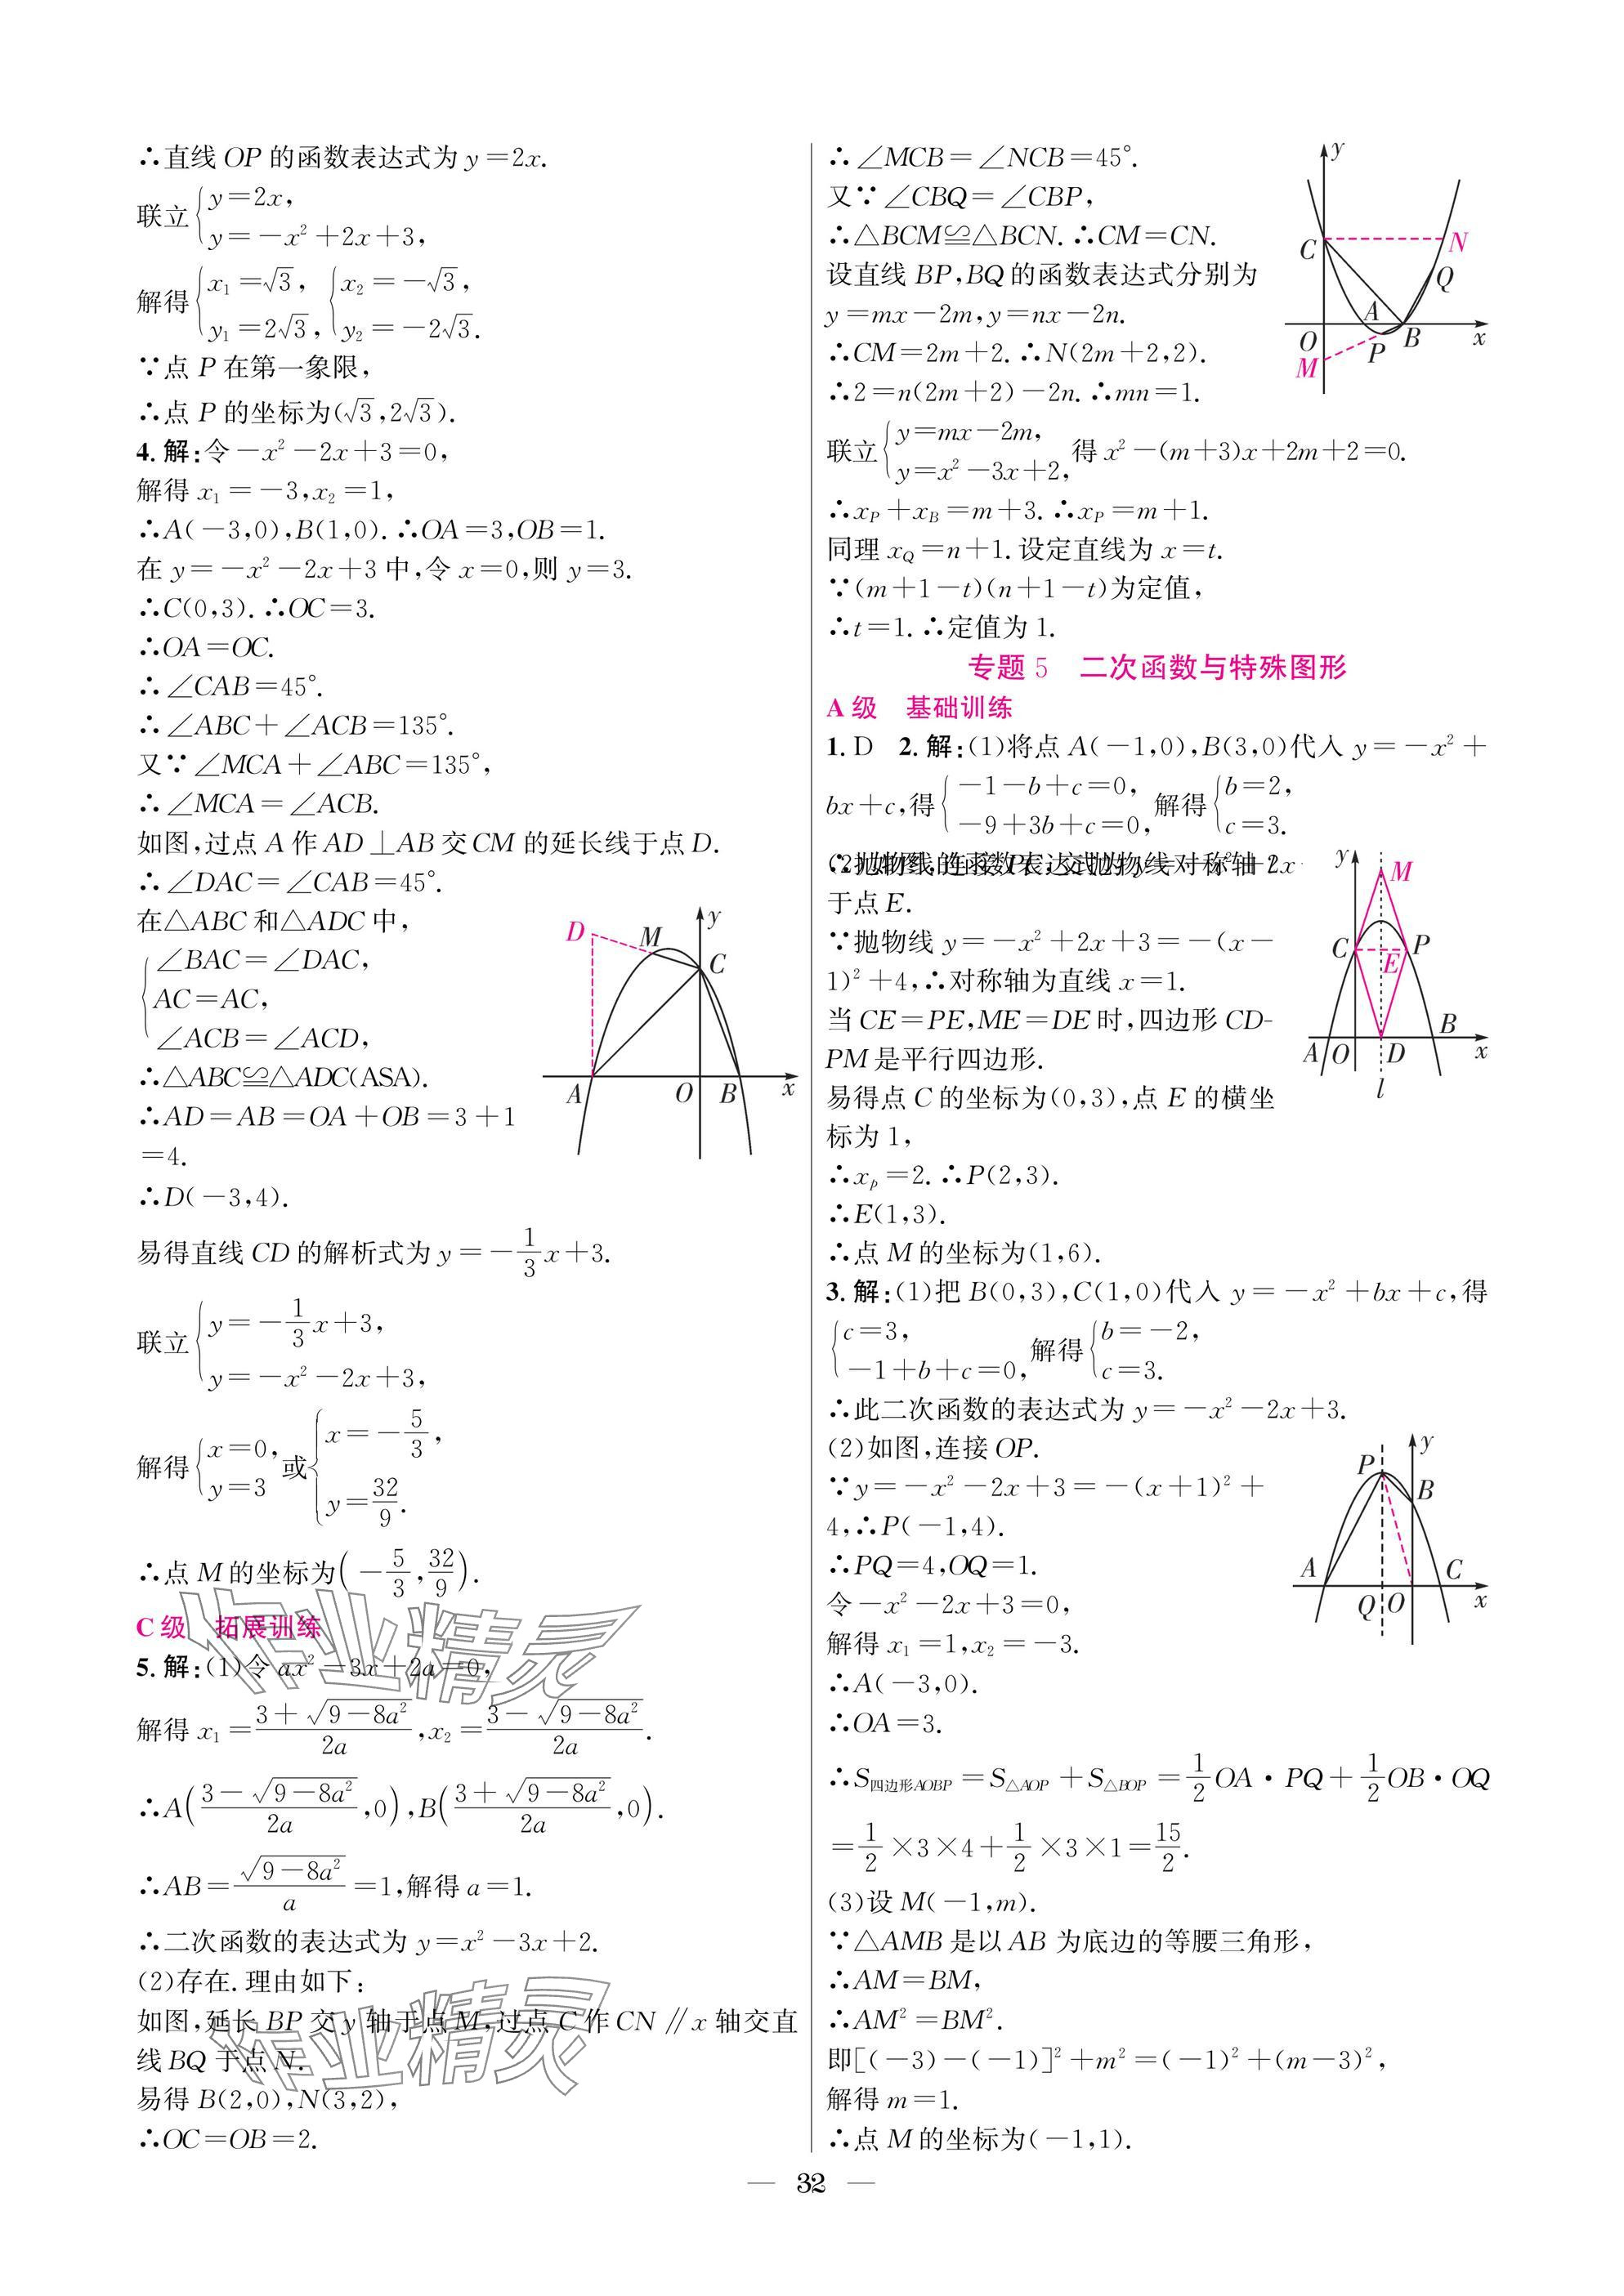 ∴直线 OP 的函数表达式为 y=2x.
联立{y=2x,
y=-x²+2x+3,
解得{x₁=√3, {x₂=-√3,
y₁=2√3, y₂=-2√3.
∵点 P 在第一象限,
∴点 P 的坐标为(√3,2√3).
4. 解:令-x²-2x+3=0,
解得 x₁=-3,x₂=1,
∴A(-3,0),B(1,0). ∴OA=3,OB=1.
在 y=-x²-2x+3 中,令 x=0,则 y=3.
∴C(0,3). ∴OC=3.
∴OA=OC.
∴∠CAB=45°.
∴∠ABC+∠ACB=135°.
又∵∠MCA+∠ABC=135°,
∴∠MCA=∠ACB.
如图,过点 A 作 AD⊥AB 交 CM 的延长线于点 D.
∴∠DAC=∠CAB=45°.
在△ABC 和△ADC 中,
{∠BAC=∠DAC,
AC=AC,
∠ACB=∠ACD,
∴△ABC≌△ADC(ASA).
∴AD=AB=OA+OB=3+1
=4.
∴D(-3,4).
D M y C A O B x
易得直线 CD 的解析式为 y=-1/3x+3.
联立{y=-1/3x+3,
y=-x²-2x+3,
解得{x=0, 或{x=-5/3,
y=3 y=32/9.
∴点 M 的坐标为(-5/3,32/9).
C 级 拓展训练
5. 解:(1)令 ax²-3x+2a=0,
解得 x₁=(3+√(9-8a²))/2a,x₂=(3-√(9-8a²))/2a.
∴A((3-√(9-8a²))/2a,0),B((3+√(9-8a²))/2a,0).
∴AB=√(9-8a²)/a=1,解得 a=1.
∴二次函数的表达式为 y=x²-3x+2.
(2)存在. 理由如下:
如图,延长 BP 交 y 轴于点 M,过点 C 作 CN∥x 轴交直
线 BQ 于点 N.
易得 B(2,0),N(3,2),
∴OC=OB=2.
作业精灵
作业精灵
∴∠MCB=∠NCB=45°.
又∵∠CBQ=∠CBP,
∴△BCM≌△BCN. ∴CM=CN.
设直线 BP,BQ 的函数表达式分别为
y=mx-2m,y=nx-2n.
∴CM=2m+2. ∴N(2m+2,2).
∴2=n(2m+2)-2n. ∴mn=1.
y C N Q A O B x P M
联立{y=mx-2m, 得 x²-(m+3)x+2m+2=0.
y=x²-3x+2,
∴xP+xB=m+3. ∴xP=m+1.
同理 xQ=n+1. 设定直线为 x=t.
∵(m+1-t)(n+1-t)为定值,
∴t=1. ∴定值为 1.
专题 5 二次函数与特殊图形
A 级 基础训练
1. D 2. 解:(1)将点 A(-1,0),B(3,0)代入 y=-x²+
bx+c,得{-1-b+c=0, 解得{b=2,
-9+3b+c=0, c=3.
于点 E.
∵抛物线 y=-x²+2x+3=-(x-
1)²+4,∴对称轴为直线 x=1.
当 CE=PE,ME=DE 时,四边形 CD-
PM 是平行四边形.
易得点 C 的坐标为(0,3),点 E 的横坐
标为 1,
∴xₚ=2. ∴P(2,3).
∴E(1,3).
∴点 M 的坐标为(1,6).
y M C E P A O D B x l
3. 解:(1)把 B(0,3),C(1,0)代入 y=-x²+bx+c,得
{c=3, 解得{b=-2,
-1+b+c=0, c=3.
∴此二次函数的表达式为 y=-x²-2x+3.
(2)如图,连接 OP.
∵y=-x²-2x+3=-(x+1)²+
4,∴P(-1,4).
∴PQ=4,OQ=1.
令-x²-2x+3=0,
解得 x₁=1,x₂=-3.
∴A(-3,0).
∴OA=3.
y P B A C Q O x
∴S四边形AOBP=S△AOP+S△BOP=1/2OA·PQ+1/2OB·OQ
=1/2×3×4+1/2×3×1=15/2.
(3)设 M(-1,m).
∵△AMB 是以 AB 为底边的等腰三角形,
∴AM=BM,
∴AM²=BM².
即[(-3)-(-1)]²+m²=(-1)²+(m-3)²,
解得 m=1.
∴点 M 的坐标为(-1,1).
— 32 —